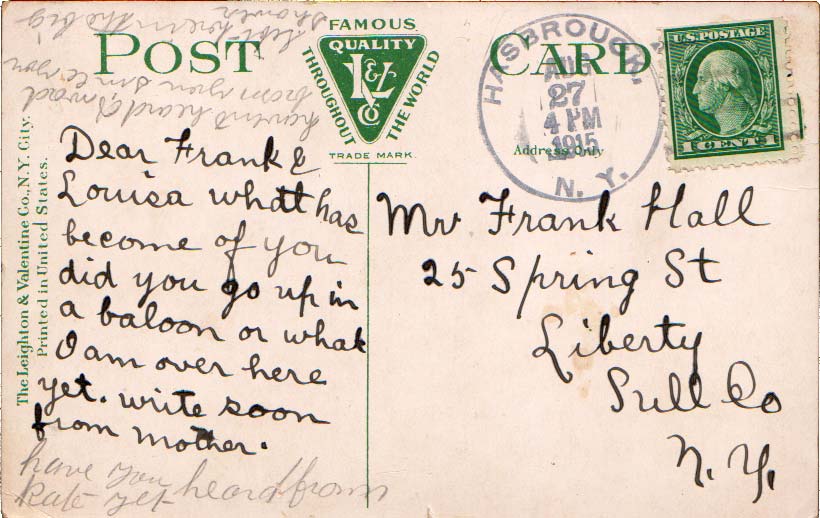 POST CARD
FAMOUS
QUALITY
L&V
Co
THROUGHOUT THE WORLD
TRADE MARK.
Address Only
HASBROUCK,
AUG
27
4 PM
1915
N. Y.
U.S. POSTAGE
1 CENT 1
The Leighton & Valentine Co., N.Y. City.
Printed in United States.
Dear Frank &
Louisa what has
become of you
did you go up in
a baloon or what
I am over here
yet. write soon
from Mother.
have you heard from
Kate yet
havent heard a word
from you since you
left here in the big
shower
Mr Frank Hall
25 Spring St
Liberty
Sull Co
N. Y.